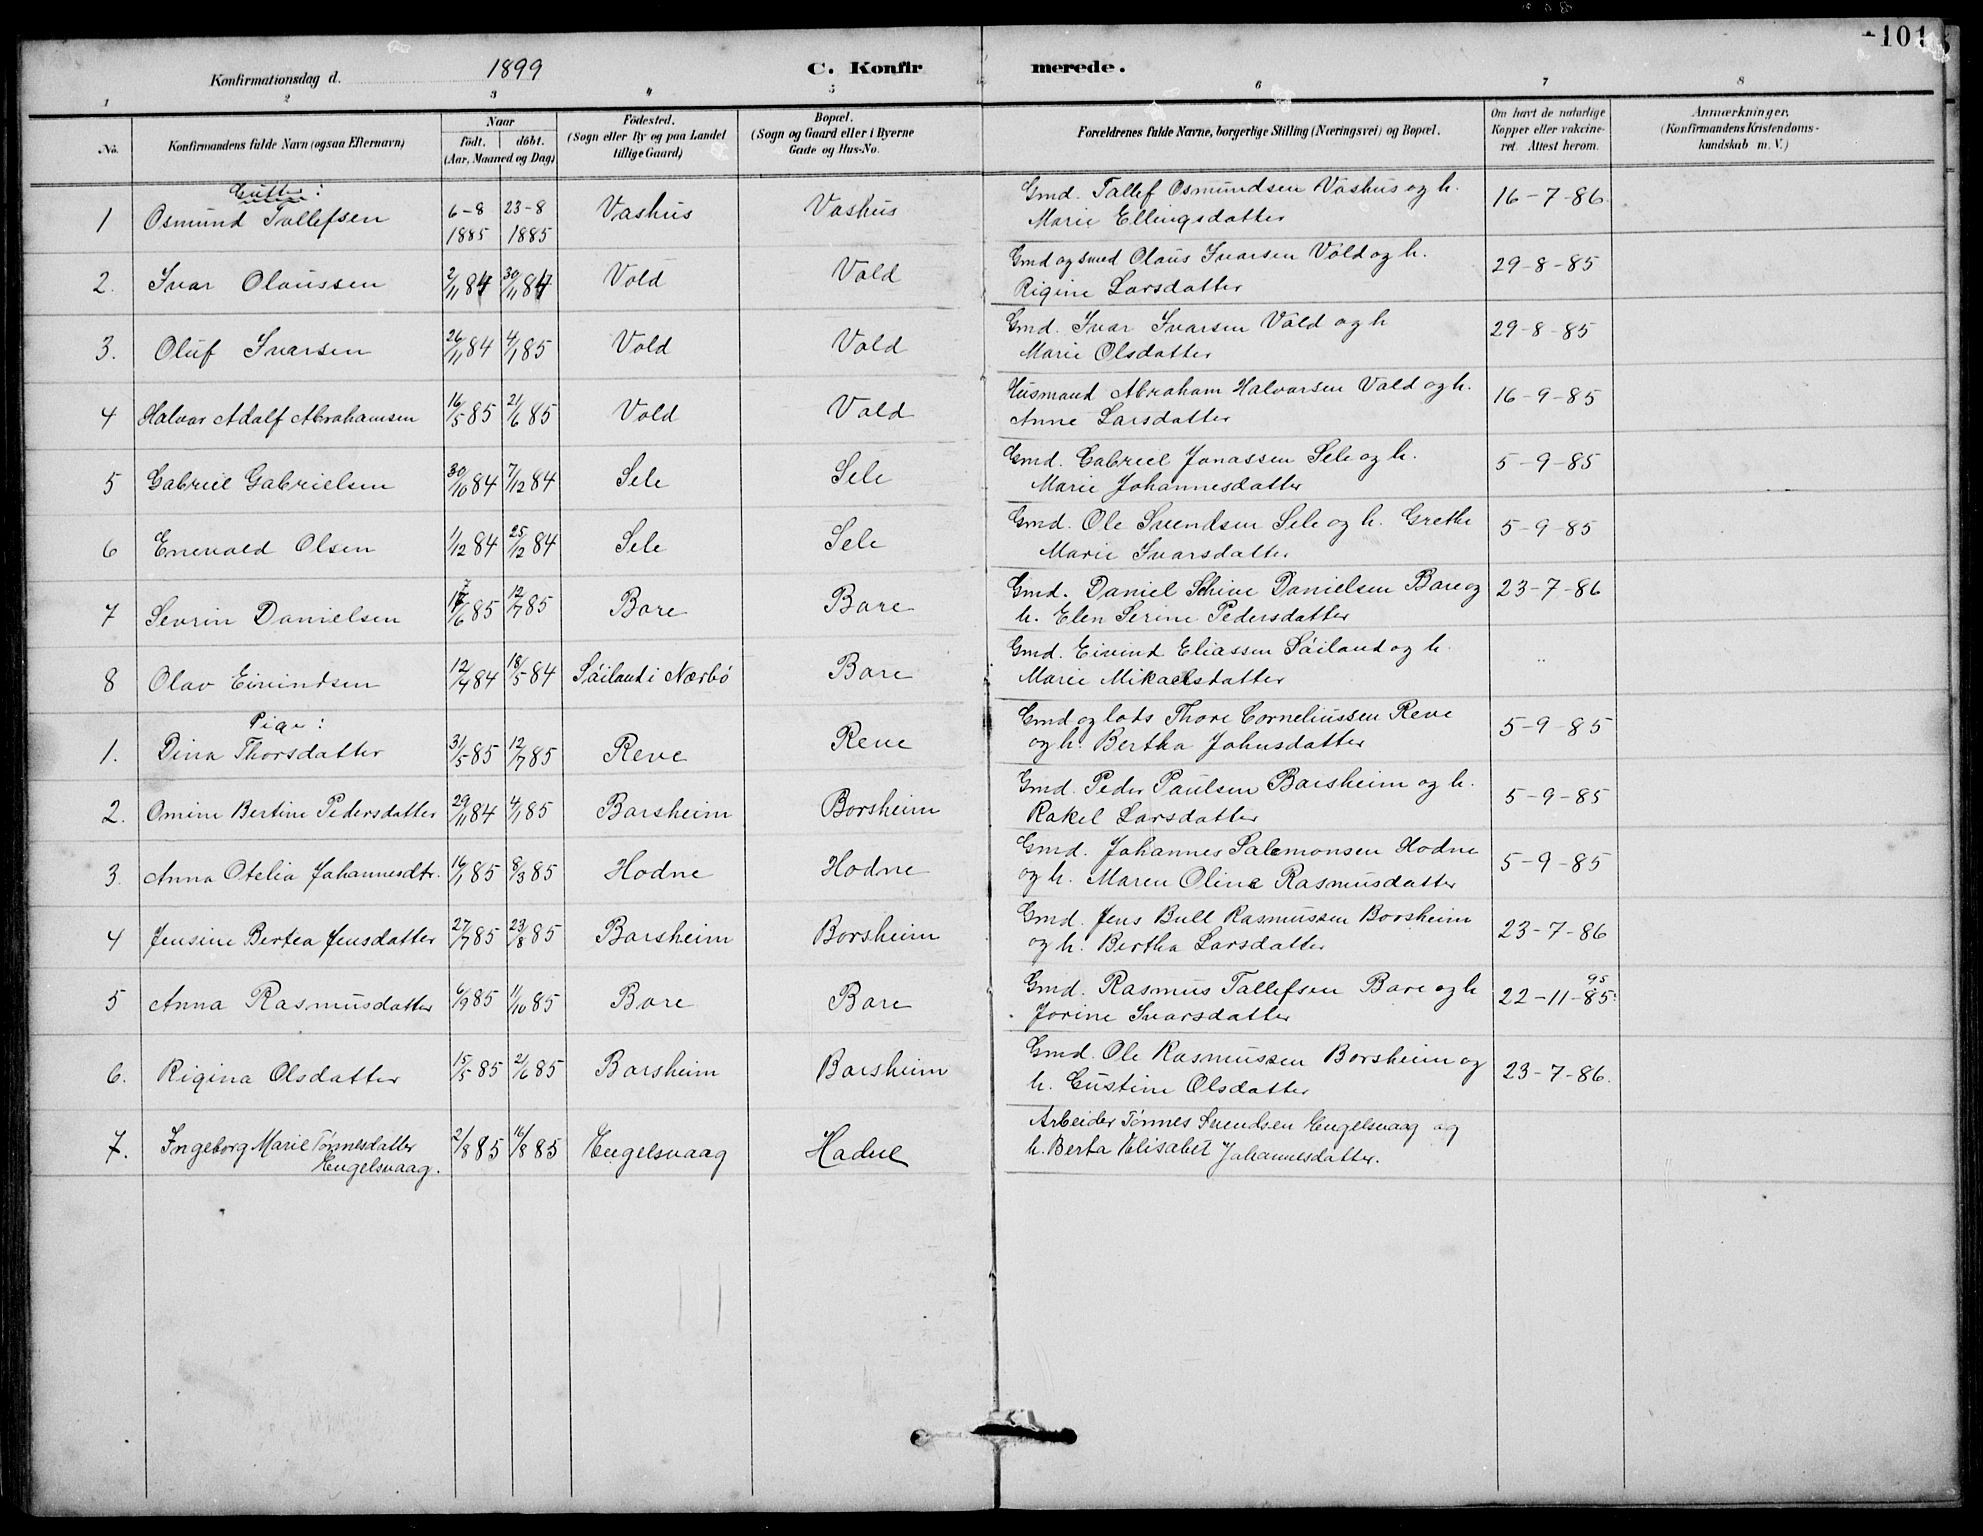 101
Konfirmationsdag d. 1899 C. Konfirmerede.
1 2 3 4 5 6 7 8
No. Konfirmandens fulde Navn (ogsaa Efternavn) Naar födt. döbt. (Aar, Maaned og Dag) Födested. (Sogn eller By og paa Landet tillige Gaard) Bopæl. (Sogn og Gaard eller i Byerne Gade og Hus-No. Forældrenes fulde Navne, borgerlige Stilling (Næringsvei) og Bopæl. Om havt de naturlige Kopper eller vakcineret. Attest herom. Anmærkninger. (Konfirmandens Kristendomskundskab m. V.)
Gutter:
1 Osmund Tallefsen 6-8 1885 23-8 1885 Vashus Vashus Gmd. Tallef Osmundsen Vashus og h. 16-7-86
Marie Ellingsdatter
2. Ivar Olaussen 2/11 84 30/11 84 Vold Vold Gmd og smed Olaus Ivarsen Vold og h. 29-8-85
Rigine Larsdatter
3. Oluf Ivarsen 26/11 84 4/1 85 Vold Vold Gmd. Ivar Ivarsen Vold og h 29-8-85
Marie Olsdatter
4 Halvar Adolf Abrahamsen 16/5 85 21/6 85 Vold Vold Husmand Abraham Halvorsen Vold og h. 16-9-85
Anne Larsdatter
5 Gabriel Gabrielsen 30/10 84 7/12 84 Sele Sele Gmd. Gabriel Jonassen Sele og h. 5-9-85
Marie Johannesdatter
6 Enevald Olsen 1/12 84 25/12 84 Sele Sele Gmd. Ole Svendsen Sele og h. Grethe 5-9-85
Marie Ivarsdatter
7 Sevrin Danielsen 17/6 85 12/7 85 Bore Bore Gmd. Daniel Danielsen Bore og 23-7-86
h. Elen Serine Pedersdatter
8 Olav Eivindsen 12/4 84 18/5 84 Söiland i Nærbö Bore Gmd. Eivind Eliassen Söiland og h. ..
Marie Mikaelsdatter
Pige:
1. Dina Thorsdatter 31/5 85 12/7 85 Reve Reve Gmd og lods Thore Corneliussen Reve 5-9-85
og h. Bertha Johnsdatter
2. Omine Bertine Pedersdatter 29/11 84 4/1 85 Borsheim Borsheim Gmd. Peder Paulsen Borsheim og h. 5-9-85
Rakel Larsdatter
3. Anna Otelia Johannesdtr. 16/1 85 8/3 85 Hodne Hodne Gmd. Johannes Salemonsen Hodne 5-9-85
og h. Maren Oline Rasmusdatter
4 Jensine Bertea Jensdatter 27/7 85 23/8 85 Borsheim Borsheim Gmd. Jens Bull Rasmussen Borsheim 23-7-86
og h. Bertha Larsdatter
5 Anna Rasmusdatter 6/9 85 11/10 85 Bore Bore Gmd. Rasmus Tallefsen Bore og h 22-11-85 95
Jorine Ivarsdatter
6. Rigina Olsdatter 15/5 85 21/6 85 Borsheim Borsheim Gmd. Ole Rasmussen Borsheim og 23-7-86.
h. Gustine Olsdatter
7. Ingeborg Marie Tönnesdatter Engelsvaag. 2/8 85 16/8 85 Engelsvaag Hodne Arbeider Tönnes Svendsen Engelsvaag og
h. Berta Elisabet Johannesdatter.